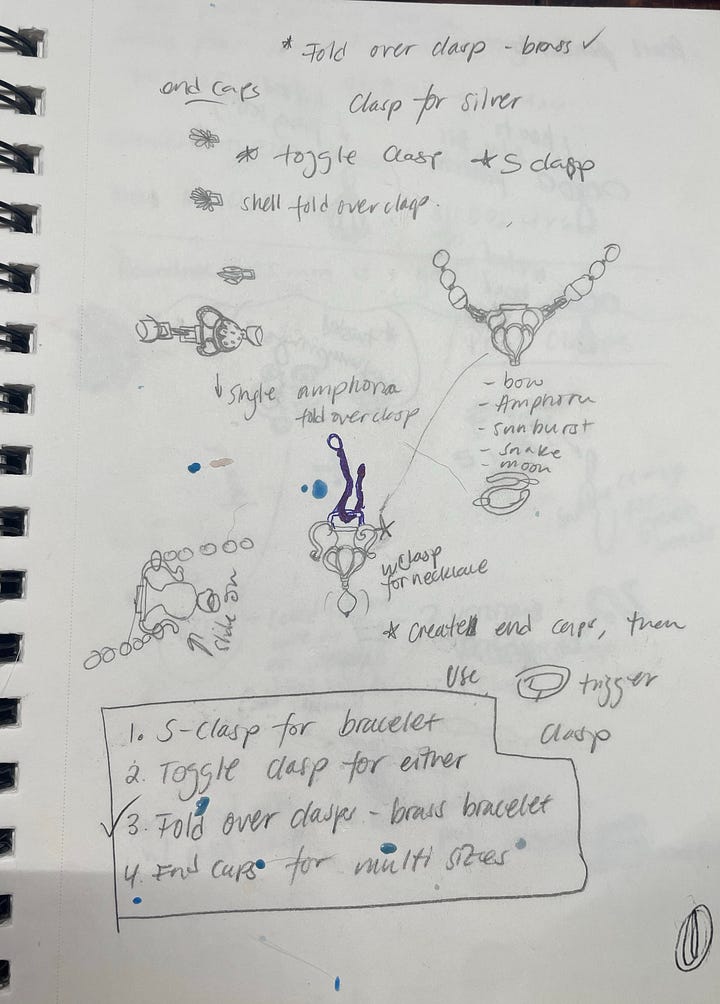 * Fold over clasp - brass ✓
end caps
Clasp for silver
* toggle clasp * S clasp
shell fold over clasp.
↓ single amphora
fold over clasp
- bow
- Amphora
- sunburst
- snake
- moon
w/clasp
for necklace
↑ slide on
* Create end caps, then
use trigger
clasp
1. S-clasp for bracelet
2. Toggle clasp for either
✓ 3. Fold over clasps - brass bracelet
4. End caps for multi sizes